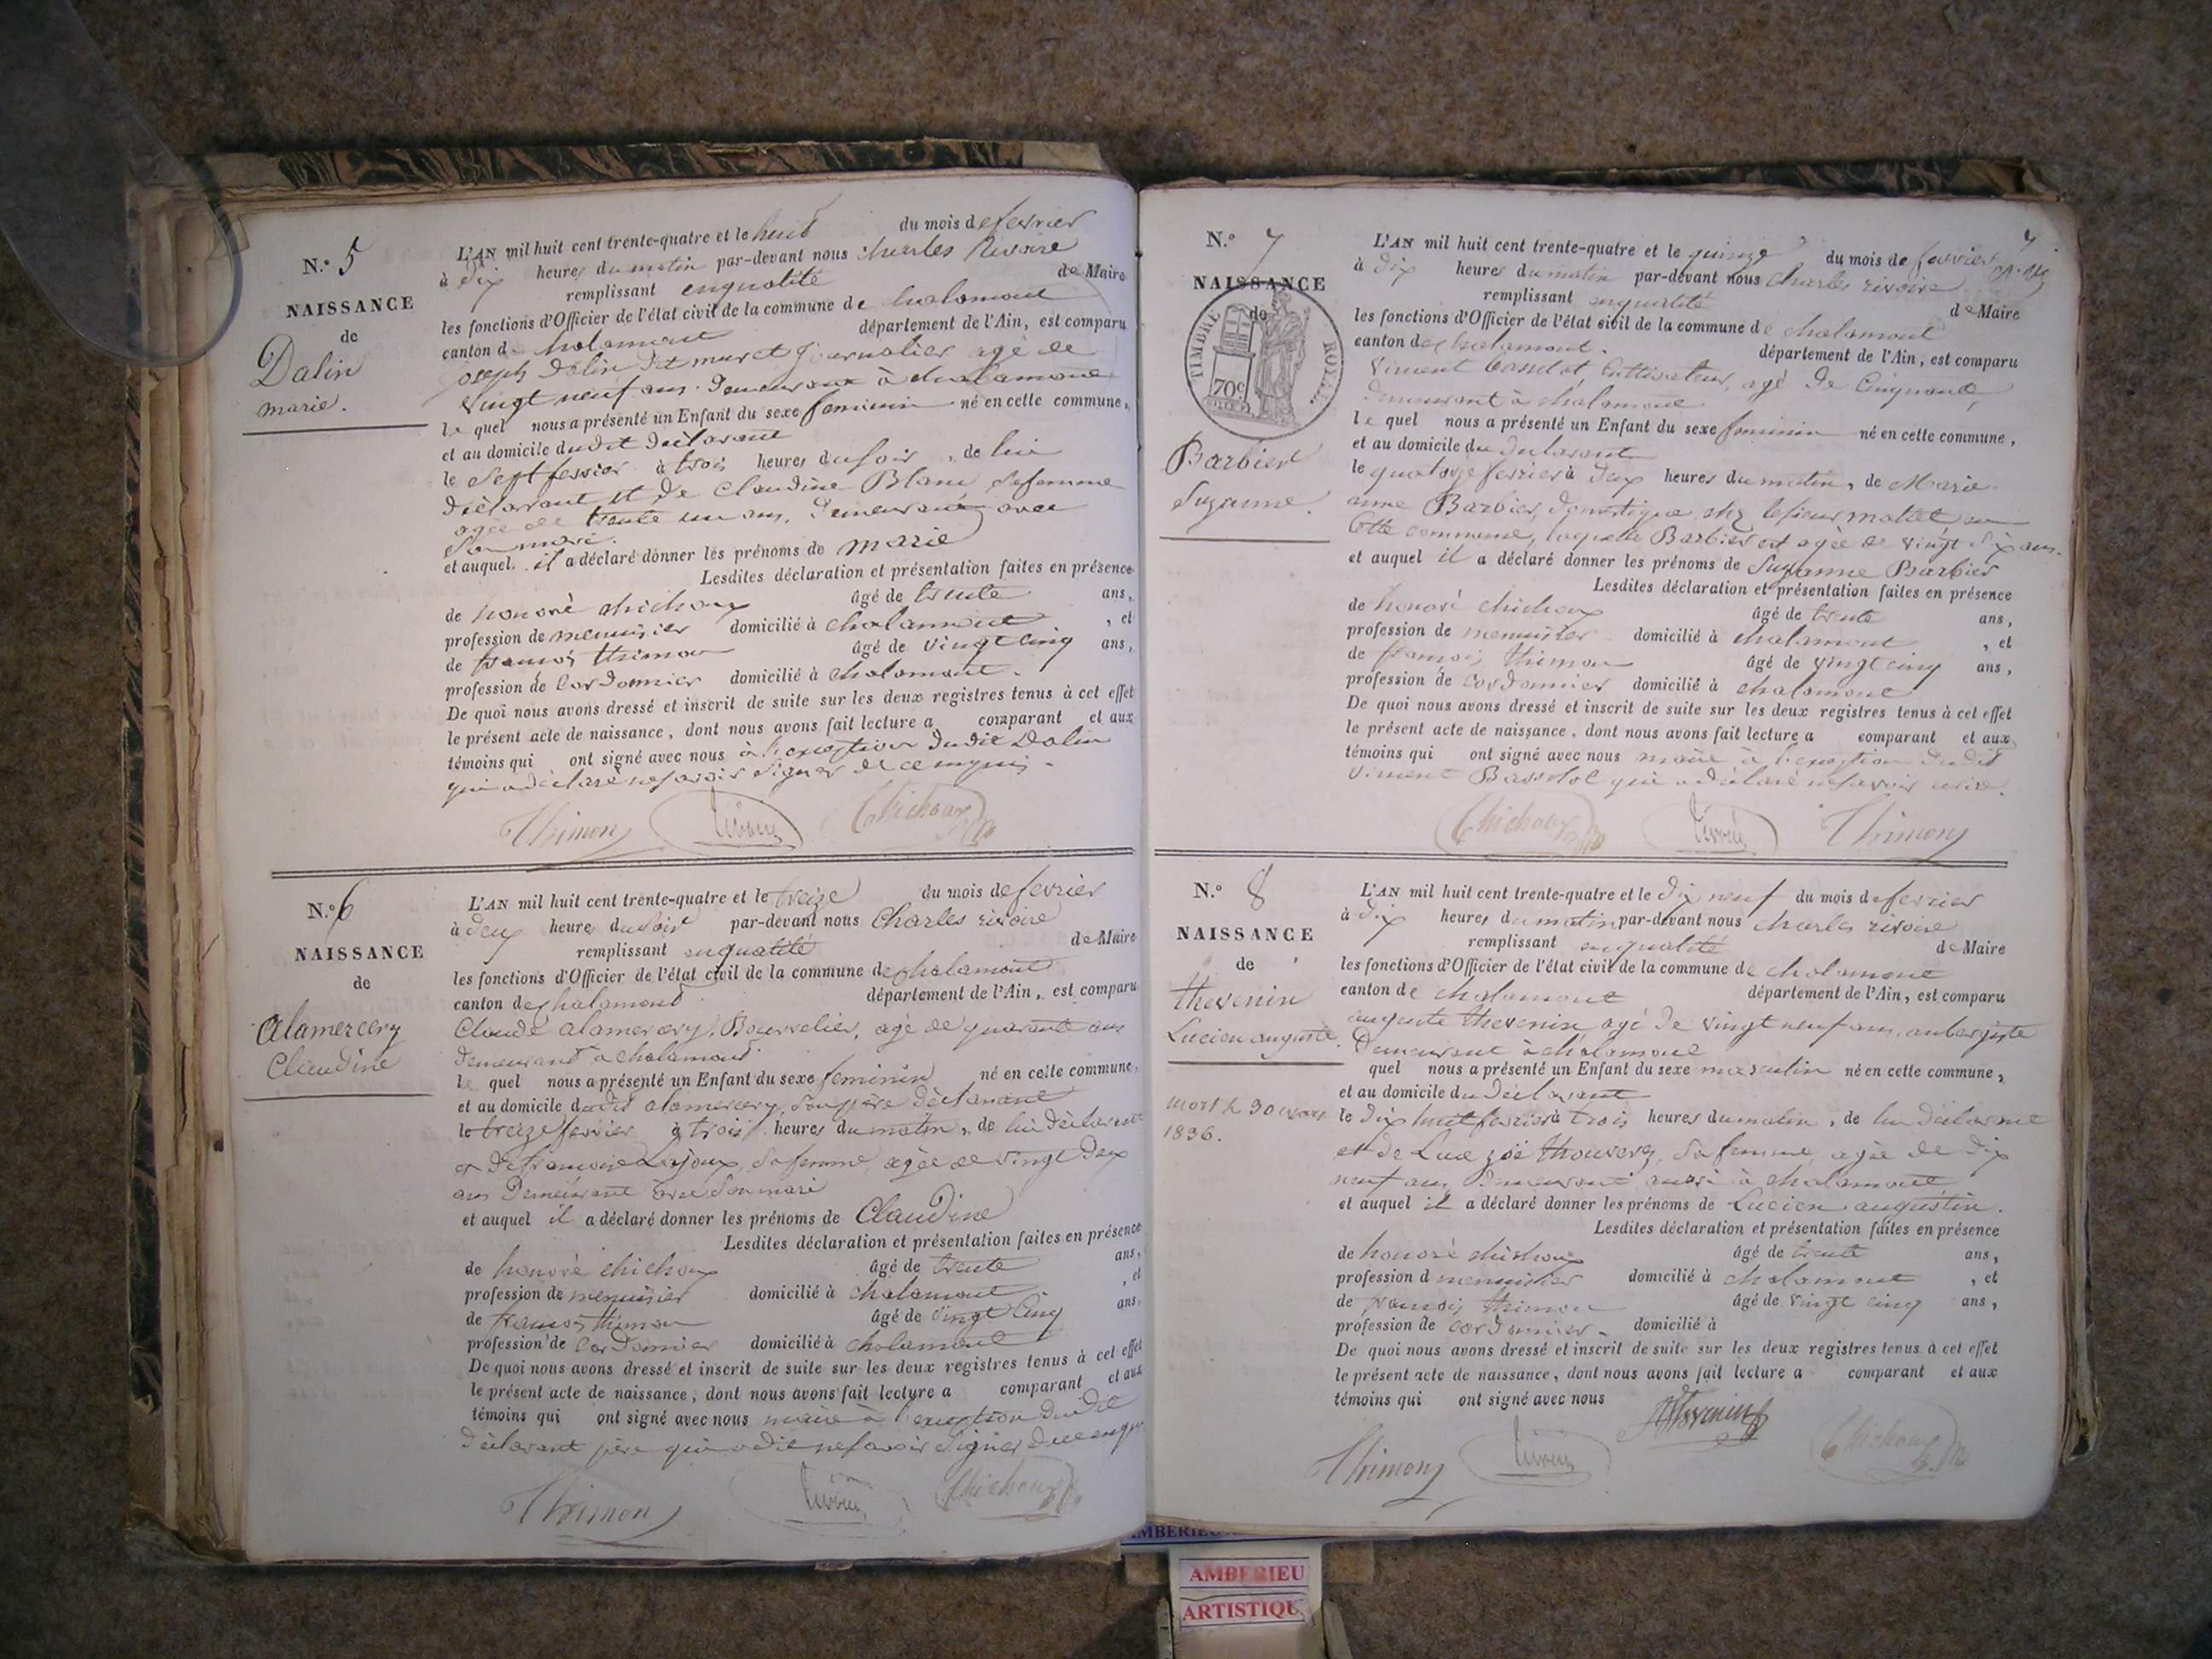 N.° 5
NAISSANCE
de
Dalin
marie.
L'AN mil huit cent trente-quatre et le huit du mois de fevrier
à dix heures du matin par-devant nous Charles Rivoire
remplissant enqualité de Maire
les fonctions d'Officier de l'état civil de la commune de chalamont
canton de chalamont département de l'Ain, est comparu
joseph Dalin dit muret journalier agé de
vingt neuf ans demeurant à chalamont
le quel nous a présenté un Enfant du sexe feminin né en cette commune,
et au domicile dudit déclarant
le sept fevrier à trois heures du soir, de lui
déclarant et de Claudine Blanc sa femme
agée de trente un ans, demeurant avec
son mari.
et auquel il a déclaré donner les prénoms de marie
Lesdites déclaration et présentation faites en présence
de honoré chichoux âgé de trente ans,
profession de menuisier domicilié à chalamont, et
de francois thimon âgé de vingt cinq ans,
profession de cordonnier domicilié à chalamont.
De quoi nous avons dressé et inscrit de suite sur les deux registres tenus à cet effet
le présent acte de naissance, dont nous avons fait lecture a comparant et aux
témoins qui ont signé avec nous à l'exception dudit Dalin
qui a déclaré ne savoir signer de ce enquis.
Thimon Rivoire Chichoux
N.° 6
NAISSANCE
de
Alamercery
Claudine
L'AN mil huit cent trente-quatre et le treize du mois de fevrier
à deux heures du soir par-devant nous Charles rivoire
remplissant enqualité de Maire
les fonctions d'Officier de l'état civil de la commune de chalamont
canton de chalamont département de l'Ain, est comparu
Claude alamercery, Bourrelier, agé de quarante ans
demeurant à chalamont
le quel nous a présenté un Enfant du sexe feminin né en cette commune,
et au domicile dudit alamercery, son père déclarant
le treize fevrier à trois heures du matin, de lui déclarant
et de francoise sa femme, agée de vingt deux
ans demeurant avec son mari
et auquel il a déclaré donner les prénoms de Claudine
Lesdites déclaration et présentation faites en présence
de honoré chichoux âgé de trente ans,
profession de menuisier domicilié à chalamont, et
de francois thimon âgé de vingt cinq ans,
profession de cordonnier domicilié à chalamont
De quoi nous avons dressé et inscrit de suite sur les deux registres tenus à cet effet
le présent acte de naissance, dont nous avons fait lecture a comparant et aux
témoins qui ont signé avec nous maire à l'exception dudit
déclarant père qui a dit ne savoir signer de ce enquis
Thimon Rivoire Chichoux
7
N.° 7
NAISSANCE
de
TIMBRE ROYAL
70c
Barbier
Suzanne.
L'AN mil huit cent trente-quatre et le quinze du mois de fevrier
à dix heures du matin par-devant nous Charles rivoire
remplissant enqualité de Maire
les fonctions d'Officier de l'état civil de la commune de chalamont
canton de chalamont. département de l'Ain, est comparu
Vincent Bassdot, cultivateur, agé de cinquante,
demeurant à chalamont
le quel nous a présenté un Enfant du sexe feminin né en cette commune,
et au domicile du déclarant
le quatorze fevrier à deux heures du matin, de Marie
anne Barbier, domestique chez le sieur mallet en
cette commune, laquelle Barbier est agée de vingt six ans.
et auquel il a déclaré donner les prénoms de Suzanne Barbier
Lesdites déclaration et présentation faites en présence
de honoré chichoux âgé de trente ans,
profession de menuisier domicilié à chalamont, et
de francois thimon âgé de vingt cinq ans,
profession de cordonnier domicilié à chalamont
De quoi nous avons dressé et inscrit de suite sur les deux registres tenus à cet effet
le présent acte de naissance, dont nous avons fait lecture a comparant et aux
témoins qui ont signé avec nous maire à l'exception dudit
Vincent Bassdot qui a déclaré ne savoir écrire.
Chichoux Rivoire Thimon
N.° 8
NAISSANCE
de
thevenin
Lucien auguste.
mort le 30 mars
1836.
L'AN mil huit cent trente-quatre et le dix neuf du mois de fevrier
à dix heures du matin par-devant nous charles rivoire
remplissant enqualité de Maire
les fonctions d'Officier de l'état civil de la commune de chalamont
canton de chalamont département de l'Ain, est comparu
auguste thevenin agé de vingt neuf ans, aubergiste
demeurant à chalamont
quel nous a présenté un Enfant du sexe masculin né en cette commune,
et au domicile du déclarant
le dix huit fevrier à trois heures du matin, de lui déclarant
et de Luce zoé thouverey, sa femme, agée de dix
neuf ans, demeurant aussi à chalamont
et auquel il a déclaré donner les prénoms de Lucien augustin.
Lesdites déclaration et présentation faites en présence
de honoré chichoux âgé de trente ans,
profession d menuisier domicilié à chalamont, et
de francois thimon âgé de vingt cinq ans,
profession de cordonnier. domicilié à
De quoi nous avons dressé et inscrit de suite sur les deux registres tenus à cet effet
le présent acte de naissance, dont nous avons fait lecture a comparant et aux
témoins qui ont signé avec nous
Thevenin
Thimon Rivoire Chichoux
AMBERIEU
AMBERIEU
ARTISTIQUE